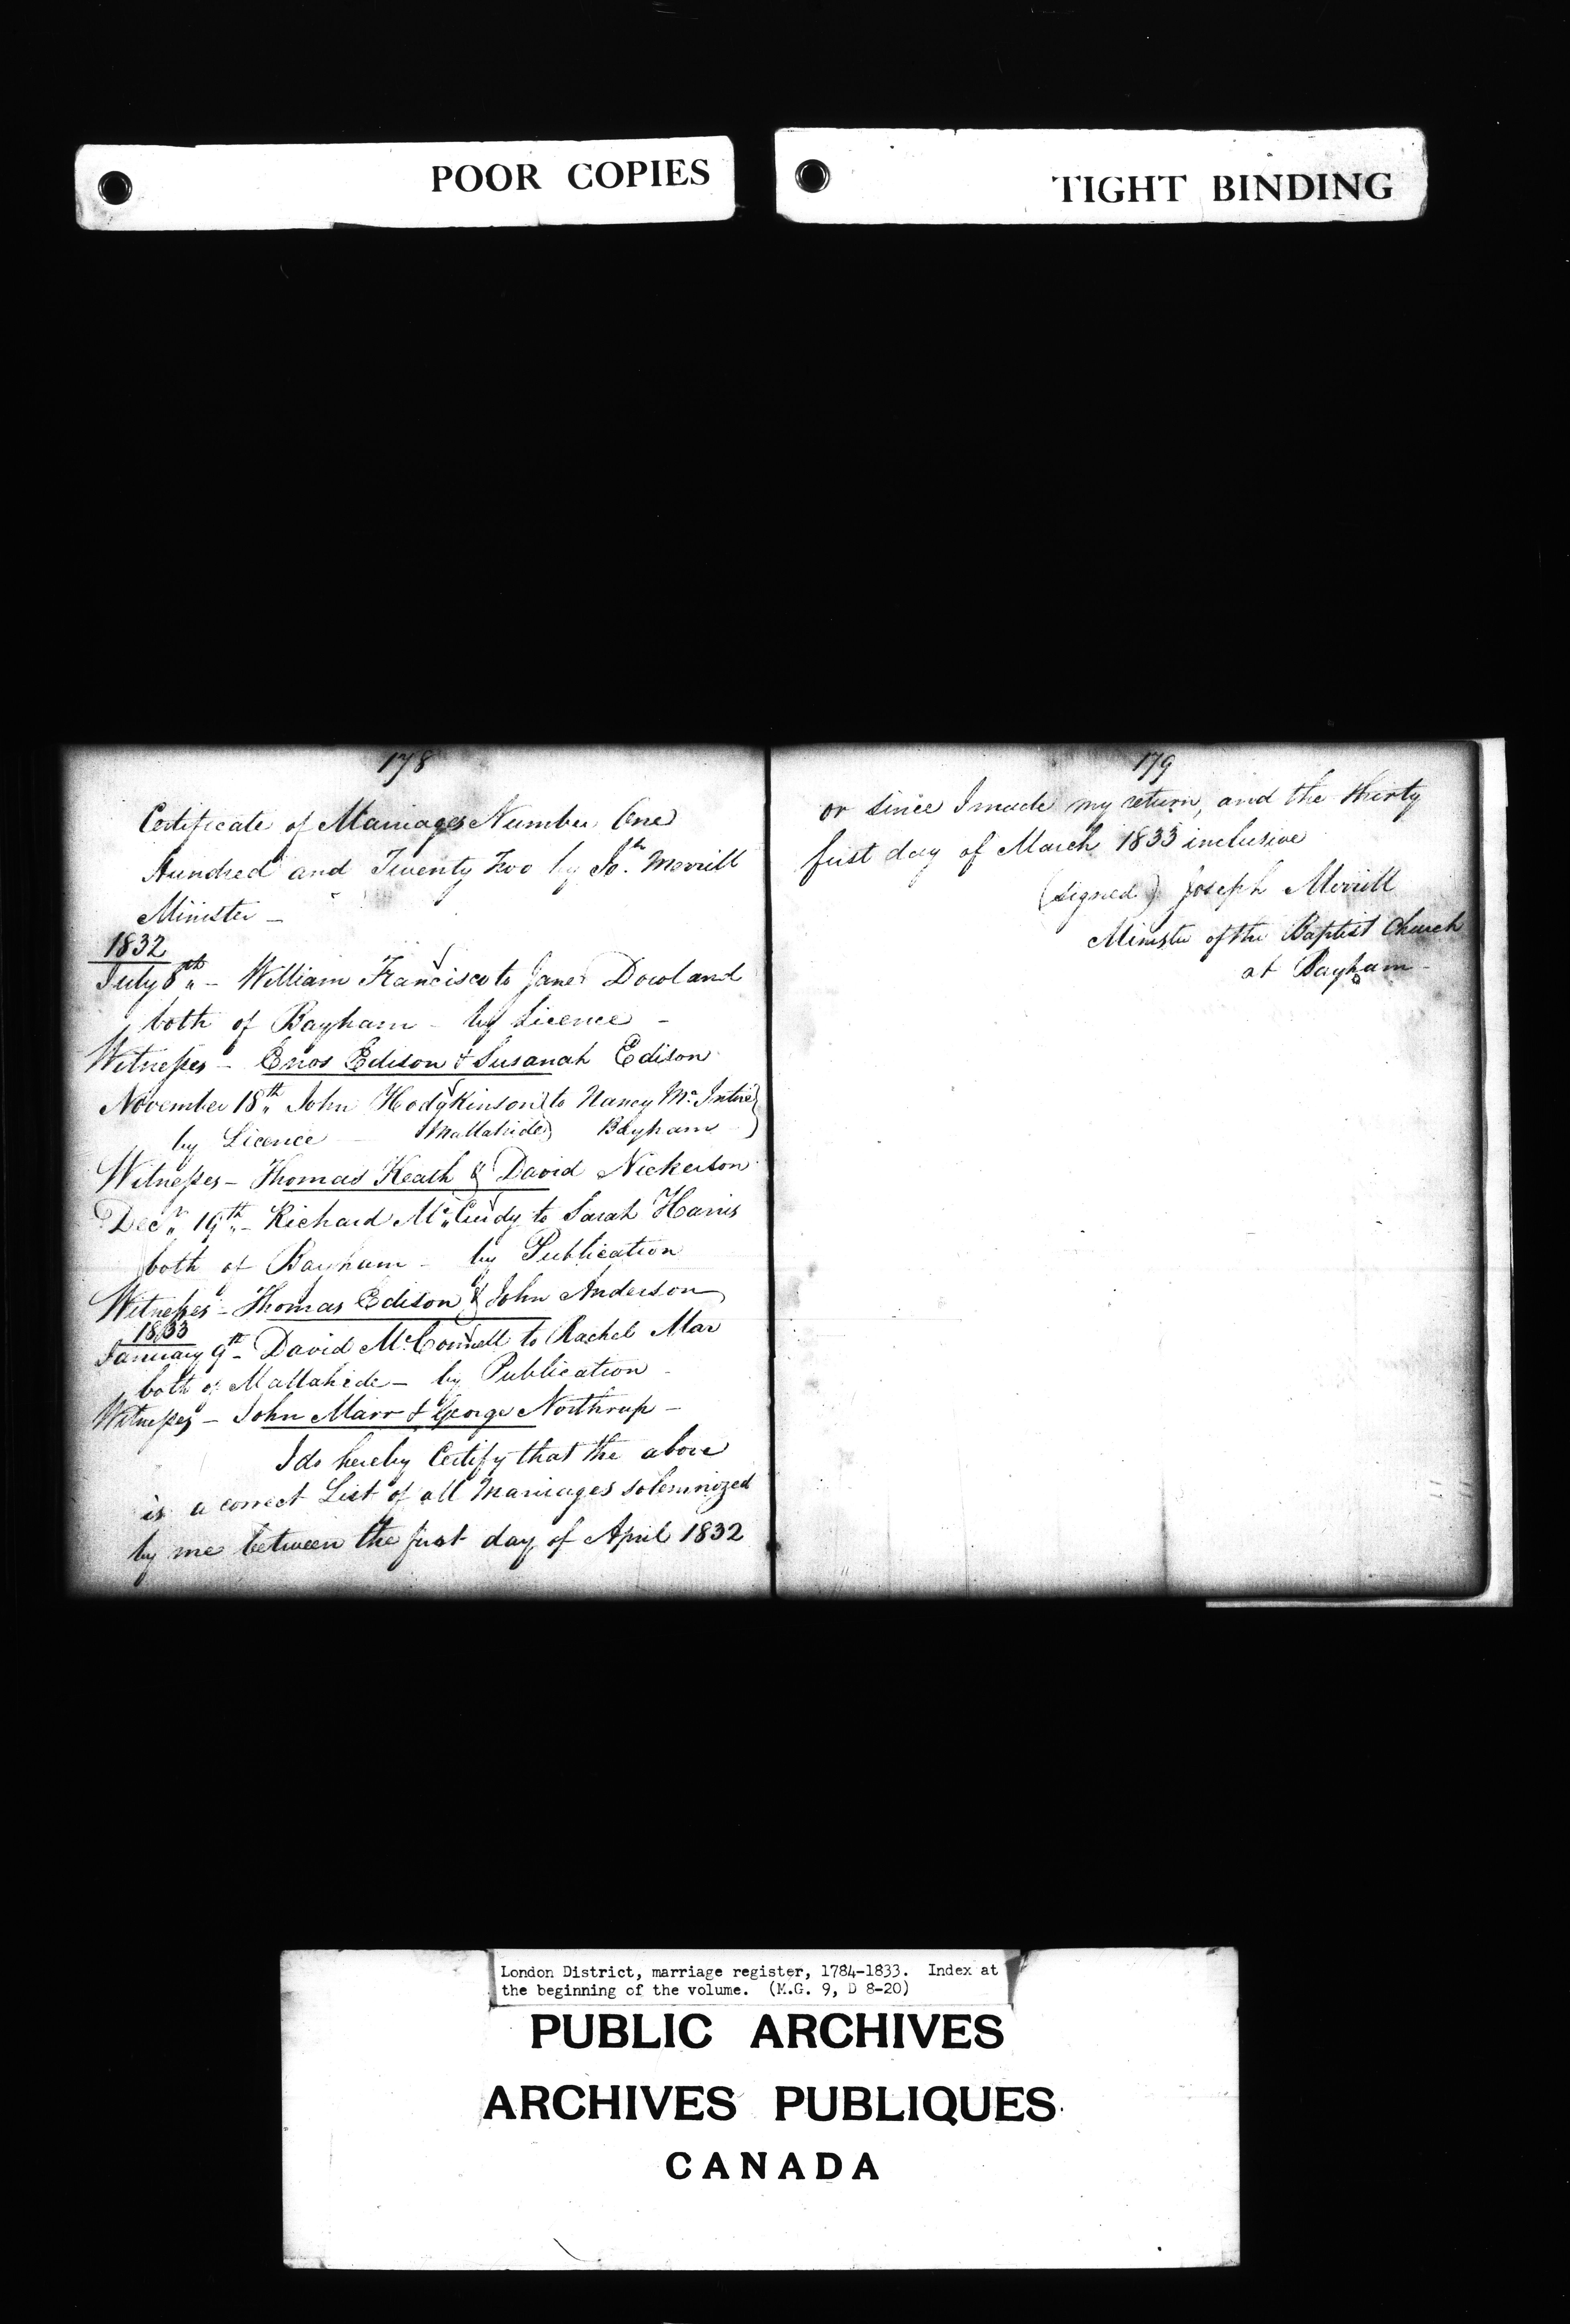 POOR COPIES
TIGHT BINDING
178
Certificate of Marriages Number One
Hundred and Twenty Two by Jos. Merrill
Minister -
1832
July 8th - William Francisco to Jane Dowland
both of Bayham - by Licence -
Witnesses - Enos Edison & Susanah Edison
November 18th John Hodgkinson to Nancy McIntire
by Licence Mallahide Bayham
Witnesses - Thomas Heath & David Nickerson
Decr 19th - Richard McCurdy to Sarah Harris
both of Bayham - by Publication
Witnesses - Thomas Edison & John Anderson
1833
January 9th - David McConnell to Rachel Mar
both of Mallahide - by Publication -
Witnesses - John Marr & George Northrup -
I do hereby Certify that the above
is a correct List of all Marriages solemnized
by me between the first day of April 1832
179
or since I made my return, and the thirty
first day of March 1833 inclusive
(signed) Joseph Merrill
Minister of the Baptist Church
at Bayham -
London District, marriage register, 1784-1833. Index at
the beginning of the volume. (M.G. 9, D 8-20)
PUBLIC ARCHIVES
ARCHIVES PUBLIQUES
CANADA